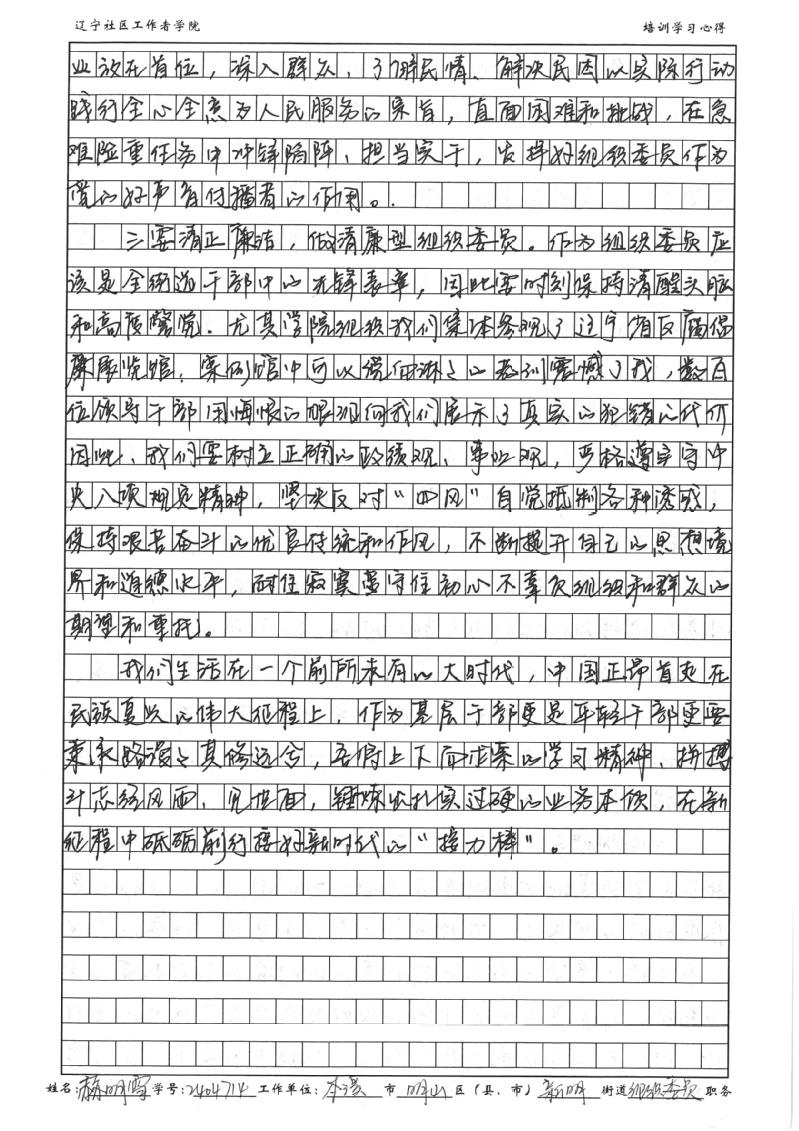 辽宁社区工作者学院 培训学习心得
业放在首位，深入群众、了解民情、解决民困以实际行动
践行全心全意为人民服务的宗旨，直面困难和挑战，在急
难险重任务中冲锋陷阵、担当实干，发挥好组织委员作为
党的好声音传播者的作用。
三要清正廉洁，做清廉型组织委员。作为组织委员应
该是全街道干部中的先锋表率，因此要时刻保持清醒头脑
和高度警觉。尤其学院组织我们集体参观了辽宁省反腐倡
廉展览馆，案例馆中可以说血淋淋的教训震撼了我，数百
位领导干部用悔恨的眼泪向我们展示了真实的犯错的代价
因此，我们要树立正确的政绩观、事业观，严格遵守守中
央八项规定精神，坚决反对“四风”自觉抵制各种诱惑，
保持艰苦奋斗的优良传统和作风，不断提升自己的思想境
界和道德水平，耐住寂寞坚守住初心不辜负组织和群众的
期望和重托。
我们生活在一个前所未有的大时代，中国正昂首走在
民族复兴的伟大征程上，作为基层干部更是年轻干部更要
秉承路漫漫其修远兮，吾得上下而求索的学习精神、拼搏
斗志经风雨、见世面，锤炼出扎实过硬的业务本领，在新
征程中砥砺前行接好新时代的“接力棒”。
姓名：明雪 学号：2404714 工作单位：本溪 市 明山 区（县、市） 新明 街道 组织委员 职务